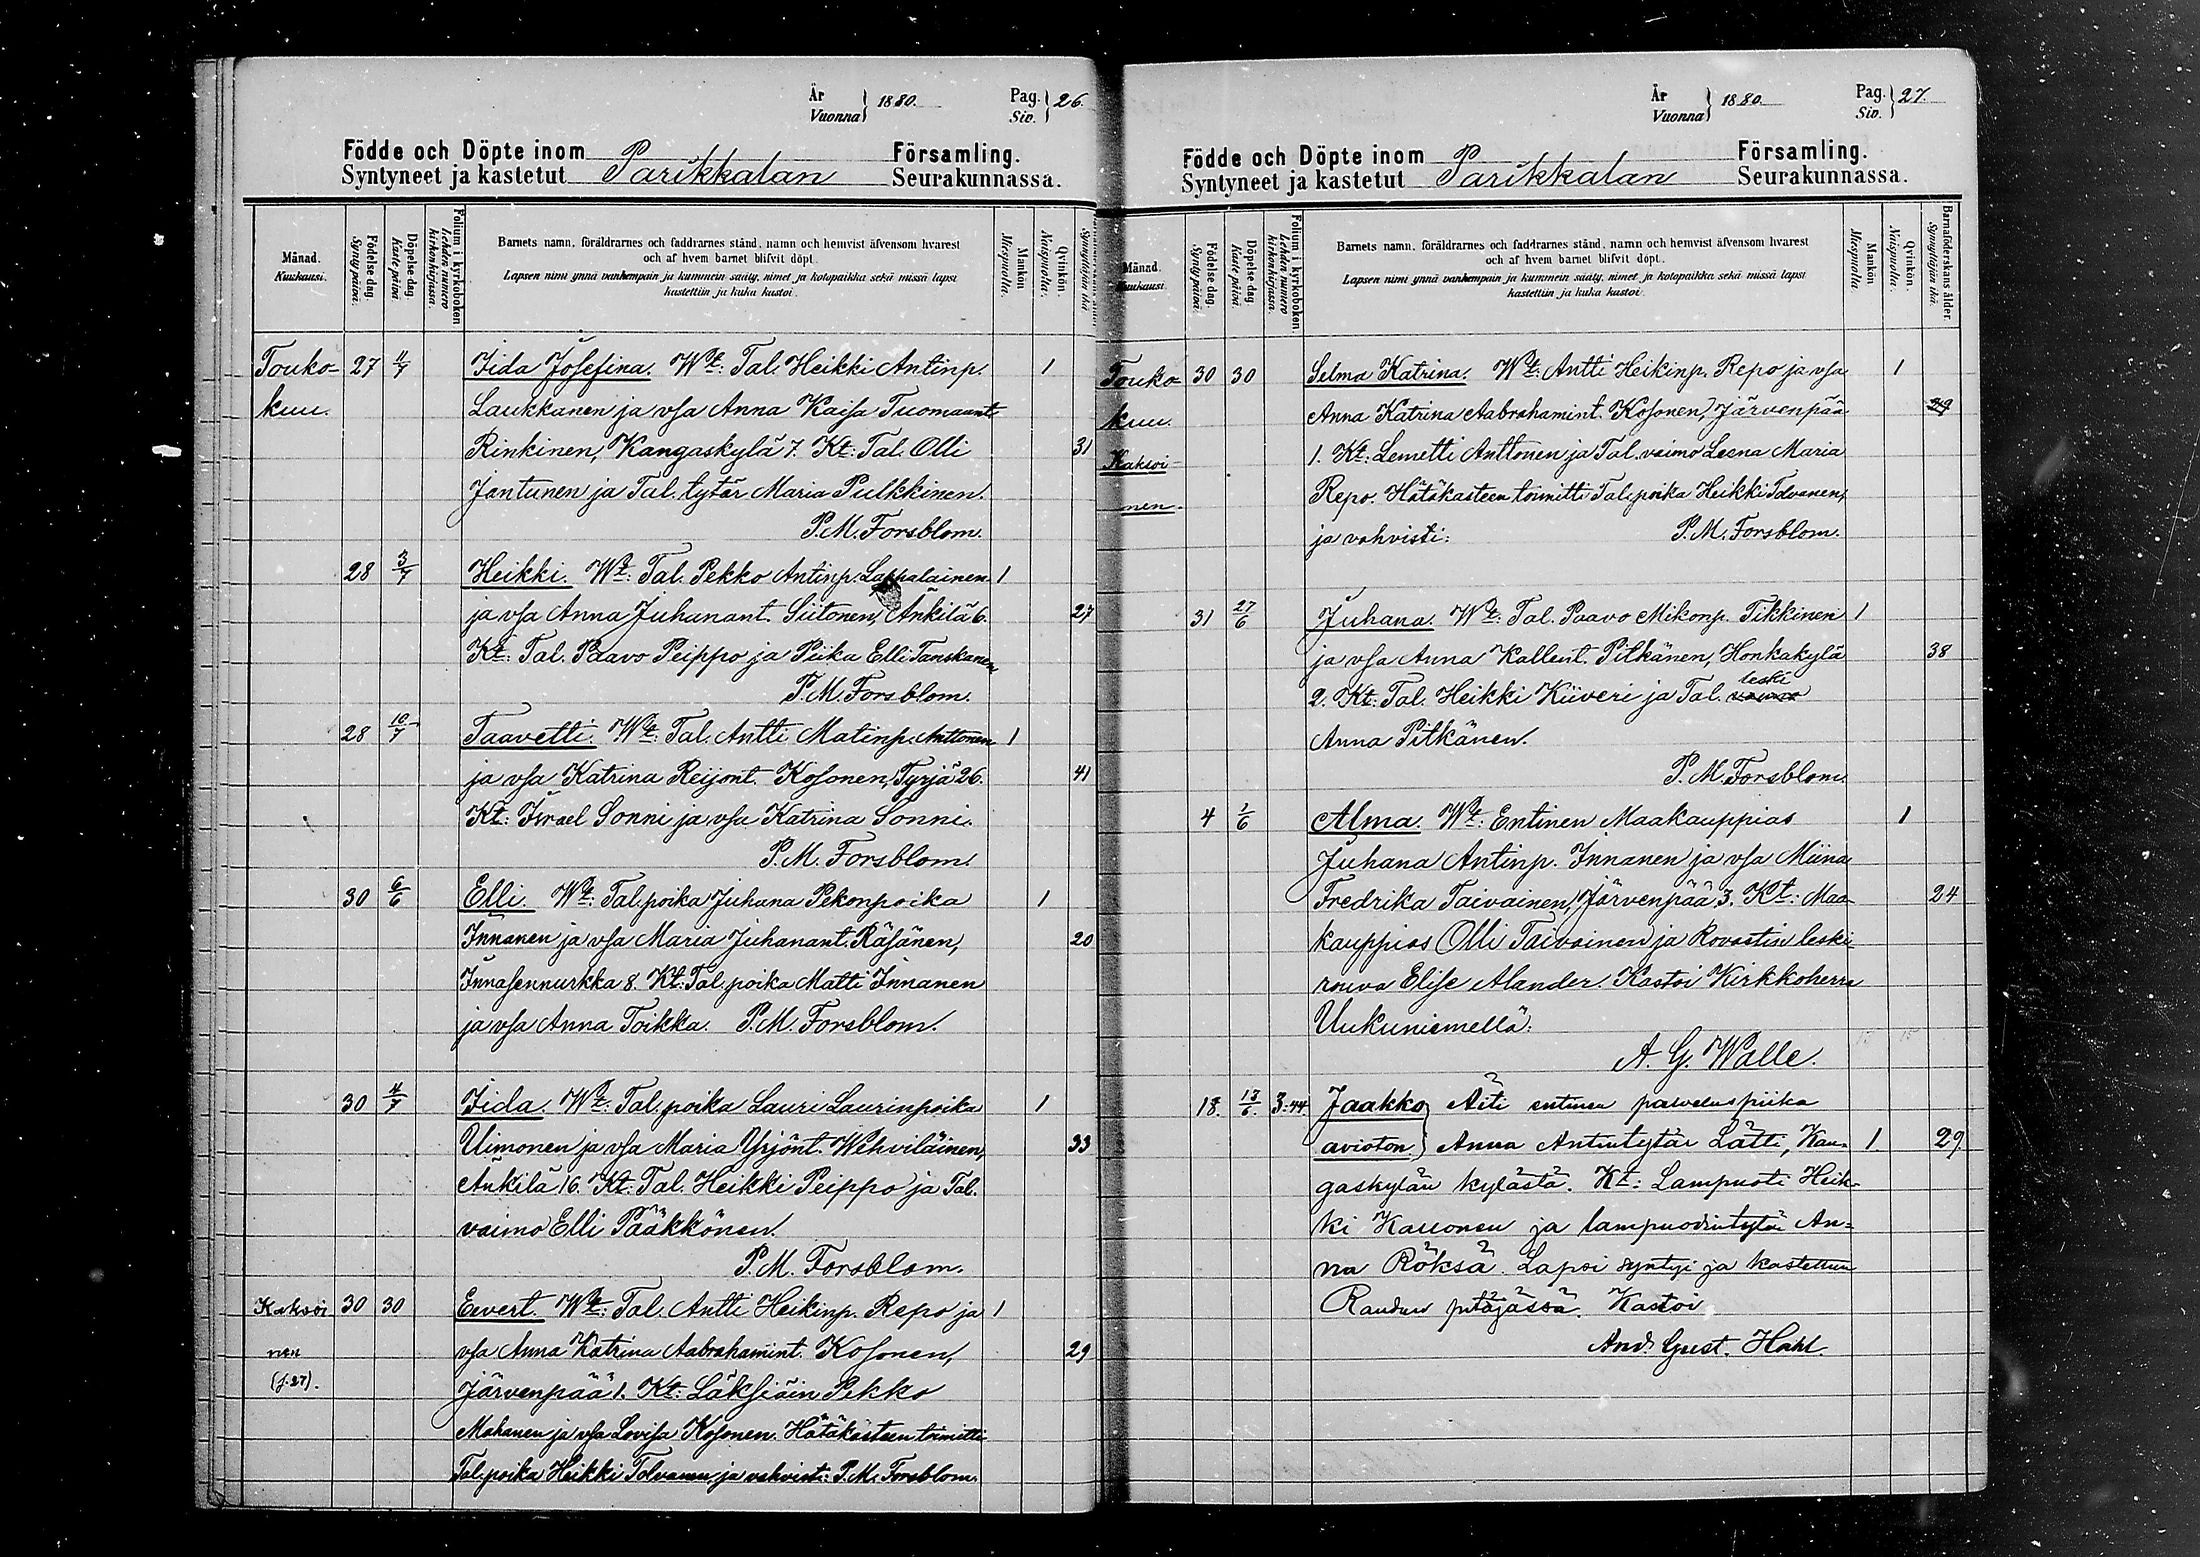 År
Vuonna } 1880.
Pag.
Siv. } 26.
Födde och Döpte inom Församling.
Syntyneet ja kastetut Parikkalan Seurakunnassa.
Månad. Kuukausi.
Födelse dag. Synty päivä.
Döpelse dag. Kaste päivä.
Folium i kyrkoboken Lehden numero kirkonkirjassa.
Barnets namn, föräldrarnes och faddrarnes stånd, namn och hemvist äfvensom hvarest
och af hvem barnet blifvit döpt.
Lapsen nimi ynnä vanhempain ja kummein sääty, nimet ja kotopaikka sekä missä lapsi
kastettiin ja kuka kastoi.
Mankön Miespuolia.
Qvinkön. Naispuolia.
Touko- 27 4/7 Iida Josefina. Wt: Tal. Heikki Antinp. 1
kuu. Laukkanen ja vsa Anna Kaisa Tuomaant.
Rinkinen, Kangaskylä 7. Kt: Tal. Olli 31
Jantunen ja Tal. tytär Maria Pulkkinen.
P.M. Forsblom.
28 3/7 Heikki. Wt: Tal. Pekko Antinp. Lappalainen 1
ja vsa Anna Juhanant. Siitonen, Änkilä 6. 27
Kt: Tal. Paavo Peippo ja Piika Elli Tanskanen
P.M. Forsblom.
28 10/7 Taavetti. Wt: Tal. Antti Matinp. Anttonen 1
ja vsa Katrina Reijont. Kosonen, Tyrjä 26. 41
Kt: Israel Sonni ja vsa Katrina Sonni.
P.M. Forsblom.
30 6/6 Elli. Wt: Tal. poika Juhana Pekonpoika 1
Innanen ja vsa Maria Juhanant. Räsänen, 20
Innasennurkka 8. Kt: Tal. poika Matti Innanen
ja vsa Anna Toikka. P.M. Forsblom.
30 4/7 Iida. Wt: Tal. poika Lauri Laurinpoika 1
Uimonen ja vsa Maria Yrjönt. Wehviläinen, 33
Änkilä 16. Kt: Tal. Heikki Peippo ja Tal.
vaimo Elli Pääkkönen.
P.M. Forsblom.
Kaksoi 30 30 Eevert. Wt: Tal. Antti Heikinp. Repo ja 1
nen vsa Anna Katrina Aabrahamint. Kosonen, 29
(s. 27). Järvenpää 1. Kt: Läksiäin Pekko
Mahanen ja vsa Lovisa Kosonen. Hätäkasteen toimitti
Tal. poika Heikki Tolvanen, ja vahvisti: P.M. Forsblom.
År
Vuonna } 1880.
Pag.
Siv. } 27.
Födde och Döpte inom Församling.
Syntyneet ja kastetut Parikkalan Seurakunnassa.
Månad. Kuukausi.
Födelse dag. Synty päivä.
Döpelse dag. Kaste päivä.
Folium i kyrkoboken Lehden numero kirkonkirjassa.
Barnets namn, föräldrarnes och faddrarnes stånd, namn och hemvist äfvensom hvarest
och af hvem barnet blifvit döpt.
Lapsen nimi ynnä vanhempain ja kummein sääty, nimet ja kotopaikka sekä missä lapsi
kastettiin ja kuka kastoi.
Mankön Miespuolia.
Qvinkön. Naispuolia.
Barnaföderskans ålder. Synnyttäjän ikä.
Touko- 30 30 Selma Katrina. Wt: Antti Heikinp. Repo ja vsa 1
kuu. Anna Katrina Aabrahamint. Kosonen, Järvenpää 29
Kaksoi- 1. Kt: Lemetti Anttonen ja Tal. vaimo Leena Maria
nen. Repo. Hätäkasteen toimitti Tal. poika Heikki Tolvanen,
ja vahvisti: P.M. Forsblom.
31 27/6 Juhana. Wt: Tal. Paavo Mikonp. Tikkinen 1
ja vsa Anna Kallent. Pitkänen, Honkakylä 38
2. Kt: Tal. Heikki Kiiveri ja Tal. vaimo leski
Anna Pitkänen.
P.M. Forsblom.
4 1/6 Alma. Wt: Entinen Maakauppias 1
Juhana Antinp. Innanen ja vsa Miina
Fredrika Taivainen, Järvenpää 3. Kt: Maa- 24
kauppias Olli Taivainen ja Rovastin leski
rouva Elise Alander. Kastoi Kirkkoherra
Uukuniemellä:
A. G. Walle.
18. 18/6. 3:44 Jaakko } Äiti entinen palveluspiika
avioton. } Anna Antintytär Lätti, Kan- 1. 29
gaskylän kylästä. Kt: Lampuoti Heik-
ki Kauonen ja lampuodintytär An-
na Röksä. Lapsi syntyi ja kastettiin
Raudun pitäjässä. Kastoi
And. Gust. Hahl.